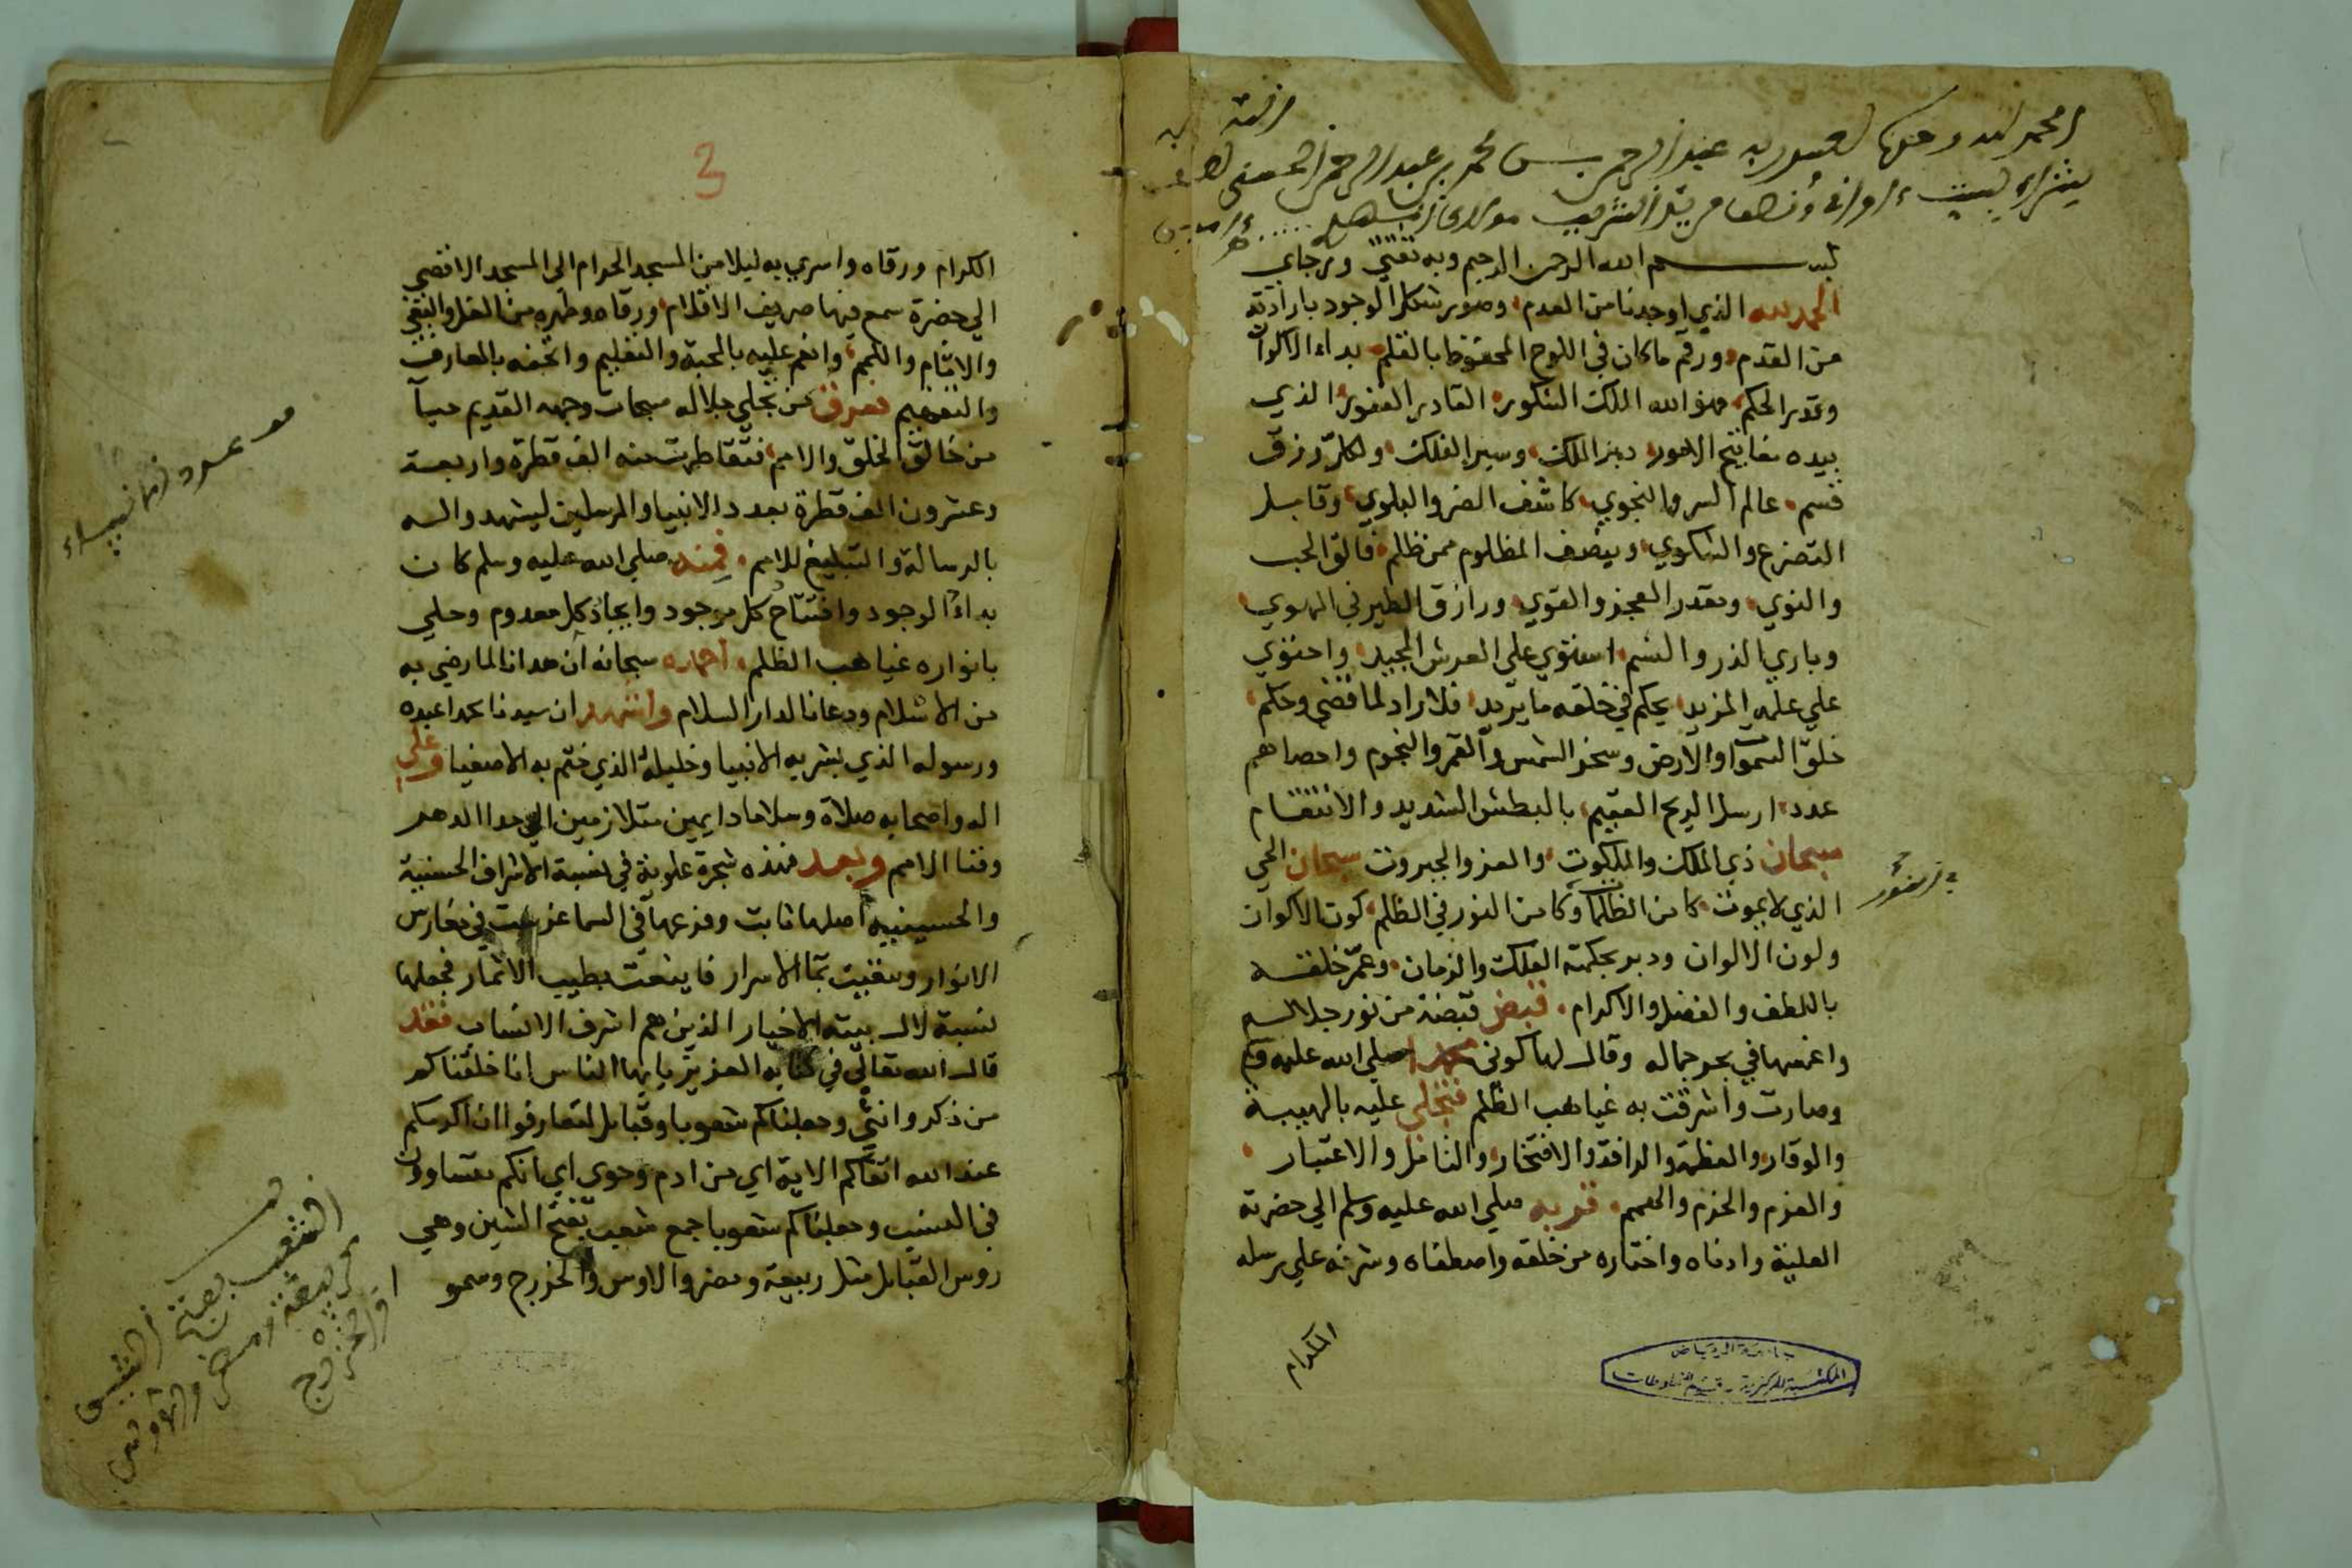 الحمد لله وحده عبد الرحمن بن محمد بن عبد الرحمن الحسني
بســـــــم الله الرحمن الرحيم وبه ثقتي ورجاي
الحمد لله الذي اوجدنا من العدم وصور شكل الوجود بارادته
من القدم ورقم ما كان في اللوح المحفوظ بالقلم بداء الاكوان
وقدر الحكم فهو الله الملك الشكور القادر الغفور الذي
بيده مفاتيح الامور دبر الملك وسير الفلك ولكل رزق
قسم عالم السر والنجوي كاشف الضر والبلوي وقابل
التضرع والشكوي وينصف المظلوم ممن ظلم فالق الحب
والنوي ومقدر العجز والقوي ورازق الطير في الهوي
وباري الذر والنسم استوي علي العرش المجيد واحتوي
علي علمه المزيد يحكم في خلقه ما يريد فلا راد لما قضي وحكم
خلق السموات والارض وسخر الشمس والقمر والنجوم واحصاهم
عدد ارسل الريح العقيم بالبطش الشديد والانتقام
سبحان ذي الملك والملكوت والعز والجبروت سبحان الحي
الذي لا يموت كامن الظلما وكامن النور في الظلم كون الاكوان
ولون الالوان ودبر بحكمته الفلك والزمان وعم خلقه
باللطف والفضل والاكرام فقبض قبضة من نور جلاله
واغمسها في بحر جماله وقال لها كوني محمدا صلي الله عليه وسلم
وصارت واشرقت به غياهب الظلم فتجلي عليه بالهيبة
والوقار والعظمة والرافة والافتخار والاعتبار
والعزم والحزم والهمم قربه صلي الله عليه وسلم الي حضرته
العلية وادناه واختاره من خلقه واصطفاه وشرفه علي رسله
الكرام
جامعة الرياض
المكتبة المركزية - قسم المخطوطات
3
الكرام ورقاه واسري به ليلا من المسجد الحرام الي المسجد الاقصي
الي حضرة سمع فيها صريف الاقلام ورقاه وطهره من الغل
والاثام واللمم وانعم عليه بالمحبة والتعليم واتحفه بالمعارف
والتفهيم فعرق من تجلي جلاله سبحات وجهه القديم حياً
من خالق الخلق والامم فتقاطرت منه الف قطرة واربعة
وعشرون الف قطرة بعدد الانبيا والمرسلين ليشهدوا له
بالرسالة والتبليغ للامم فمنه صلي الله عليه وسلم كان
بداء الوجود وافتتاح كل موجود وايجاد كل معدوم وجلي
بانواره غياهب الظلم احمده سبحانه ان هدانا لما رضي به
من الاسلام ودعانا لدار السلام واشهد ان سيدنا محمدا عبده
ورسوله الذي بشر به الانبيا وخليله الذي ختم به الاصفيا وعلي
اله واصحابه صلاة وسلاما دايمين متلازمين الي مدا الدهر
وفنا الامم وبعد فهذه شجرة علوية في نسبة الاشراف الحسنية
والحسينيه اصلها ثابت وفرعها في السما غرست في مغارس
الانوار وسقيت بما الاسرار فاينعت بطيب الاثمار فجعلها
نسبة لال بيته الاخيار الذين هم اشرف الانساب فقد
قال الله تعالي في كتابه العزيز يايها الناس انا خلقناكم
من ذكر وانثي وجعلناكم شعوبا وقبايل لتعارفوا ان اكرمكم
عند الله اتقاكم الاية اي من ادم وحوي اي انكم متساوون
في النسب وجعلناكم شعوبا جمع شعب بفتح الشين وهي
روس القبايل مثل ربيعة ومضر والاوس والخزرج وسموا
عدد الانبياء
الشعب بفتح الشين
ربيعة ومضر والأوس
والخزرج